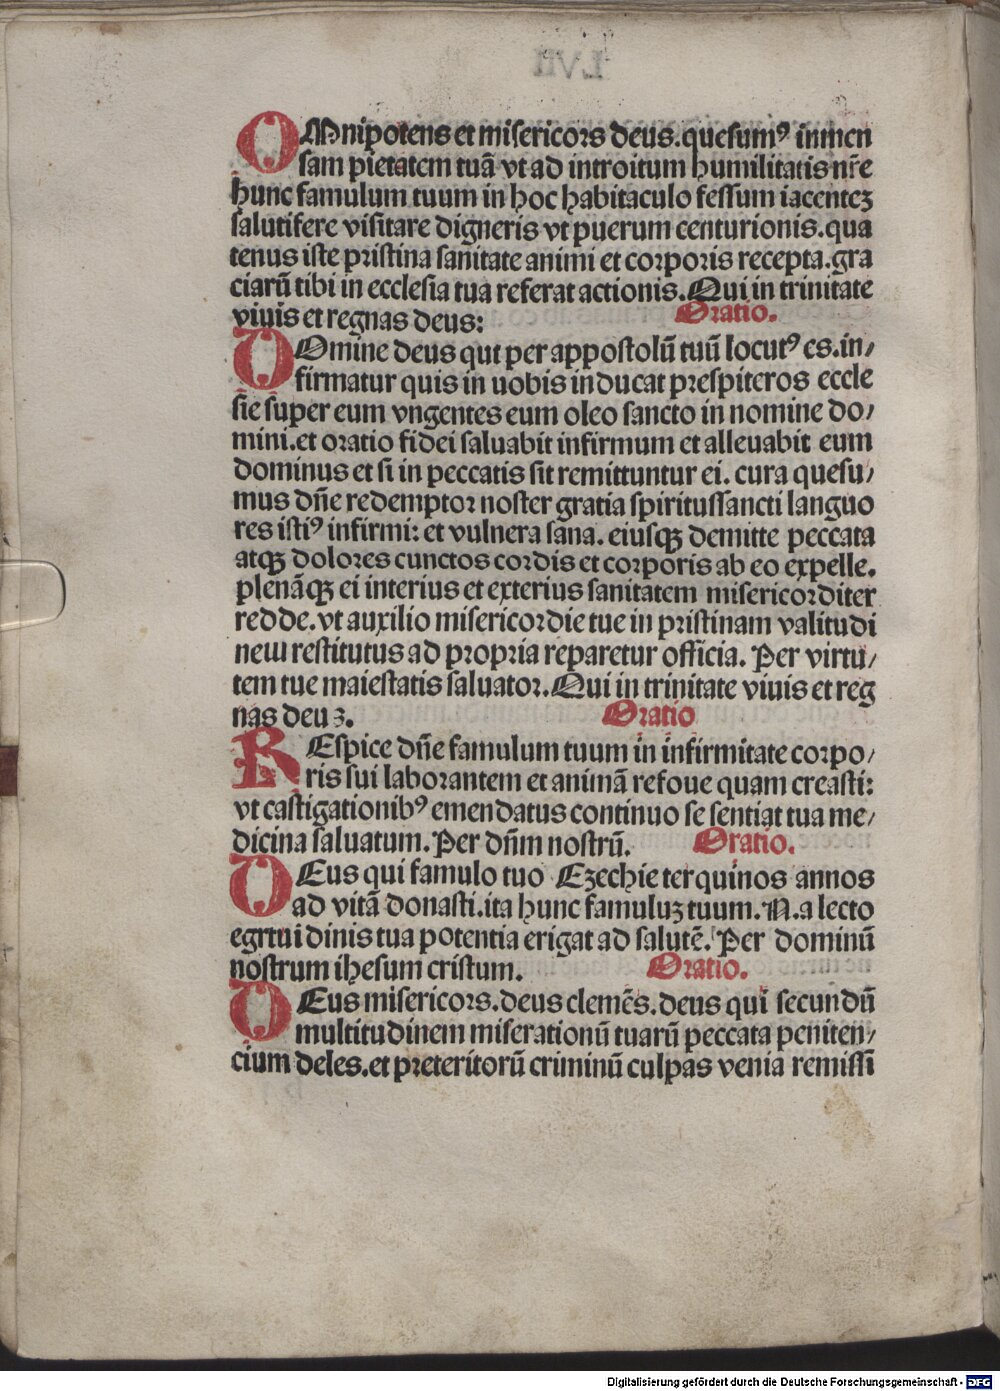 OMnipotens et misericors deus.quesumꝰ inmen
sam pietatem tuā vt ad introitum humilitatis nr̄e
hunc famulum tuum in hoc habitaculo fessum iacenteꝫ
salutifere visitare digneris vt puerum centurionis.qua
tenus iste pristina sanitate animi et corporis recepta.gra
ciarū tibi in ecclesia tua referat actionis.Qui in trinitate
viuis et regnas deus: Oratio.
DOmine deus qui per appostolū tuū locutꝰ es.in/
firmatur quis in uobis inducat prespiteros eccle
sie super eum vngentes eum oleo sancto in nomine do/
mini.et oratio fidei saluabit infirmum et alleuabit eum
dominus et si in peccatis sit remittuntur ei. cura quesu/
mus dn̄e redemptor noster gratia spiritussancti languo
res istiꝰ infirmi: et vulnera sana. eiusqꝫ demitte peccata
atqꝫ dolores cunctos cordis et corporis ab eo expelle.
plenāqꝫ ei interius et exterius sanitatem misericorditer
redde.vt auxilio misericordie tue in pristinam valitudi
neɯ restitutus ad propria reparetur officia. Per virtu/
tem tue maiestatis saluator.Qui in trinitate viuis et reg
nas deu ꝫ. Oratio
REspice dn̄e famulum tuum in infirmitate corpo/
ris sui laborantem et animā refoue quam creasti:
vt castigationibꝰ emendatus continuo se sentiat tua me/
dicina saluatum. Per dn̄m nostrū. Oratio.
DEus qui famulo tuo Ezechie ter quinos annos
ad vitā donasti.ita hunc famuluꝫ tuum.N.a lecto
egrtui dinis tua potentia erigat ad salutē. Per dominū
nostrum ihesum cristum. Oratio.
DEus misericors.deus clemēs.deus qui secundū
multitudinem miserationū tuarū peccata peniten/
cium deles.et preteritorū criminū culpas venia remissi
Digitalisierung gefördert durch die Deutsche Forschungsgemeinschaft - DFG